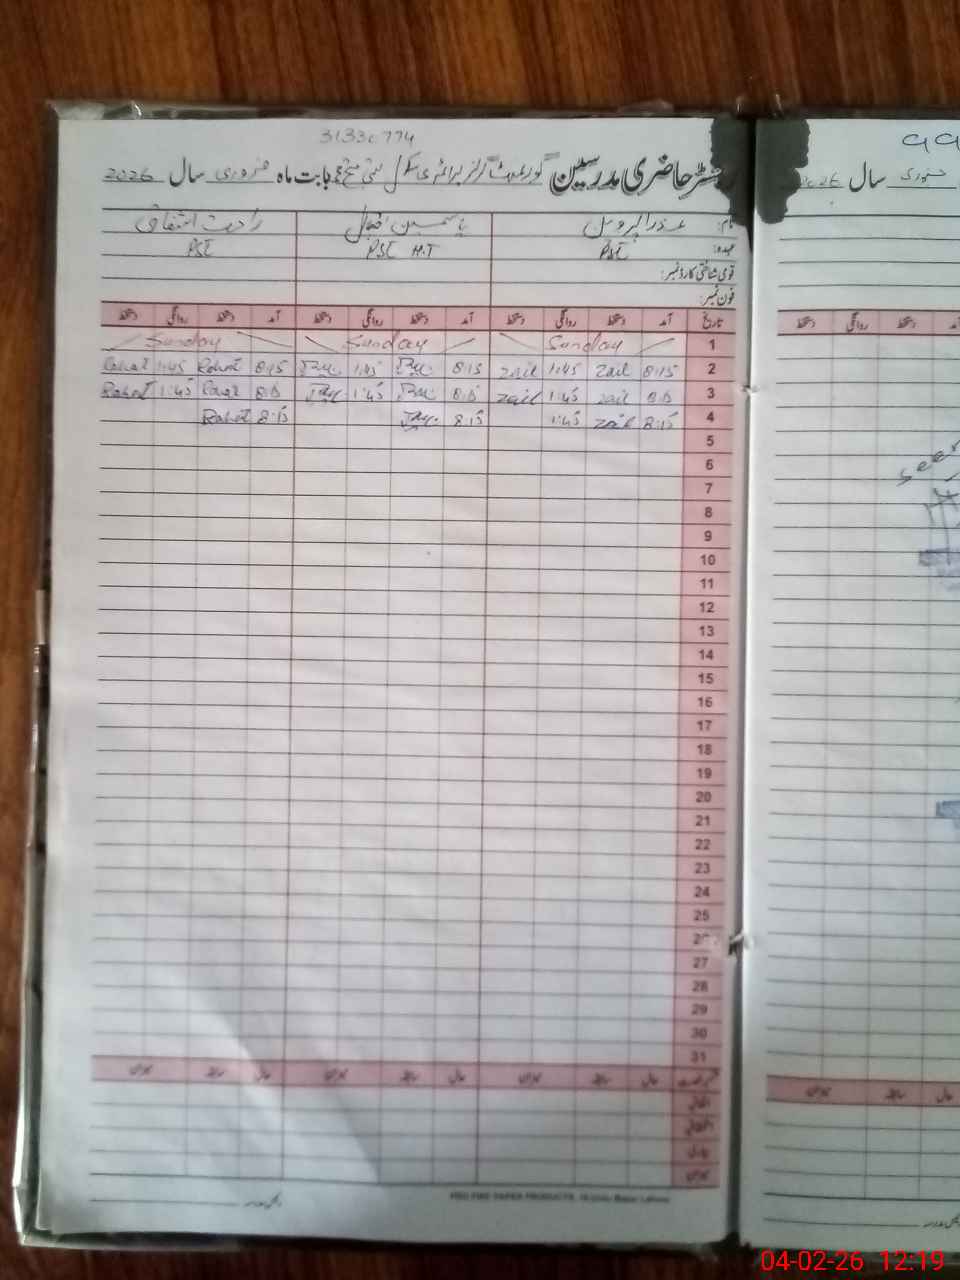 3133c774
رجسٹر حاضری مدرسین گورنمنٹ گرلز پرائمری سکول بابت ماہ فروری سال 2026
نام: عذرا پروین یاسمین افضال راحت اشفاق
عہدہ: PST PST H.T PST
قومی شناختی کارڈ نمبر:
فون نمبر:
تاریخ آمد دستخط روانگی دستخط آمد دستخط روانگی دستخط آمد دستخط روانگی دستخط
1 Sunday Sunday Sunday
2 8:15 zail 1:45 zail 8:15 1:45 8:15 Rahat 1:45 Rahat
3 8:15 zail 1:45 zail 8:15 1:45 8:15 Rahat 1:45 Rahat
4 8:15 zail 1:45 8:15 8:15 Rahat
5
6
7
8
9
10
11
12
13
14
15
16
17
18
19
20
21
22
23
24
25
26
27
28
29
30
31
حال سابقہ میزان حال سابقہ میزان حال سابقہ میزان
اتفاقی
میزان
RED FINE PAPER PRODUCTS, 16-Urdu Bazar Lahore
سال 2026
دستخط روانگی دستخط آمد
seen
میزان سابقہ حال
04-02-26 12:19